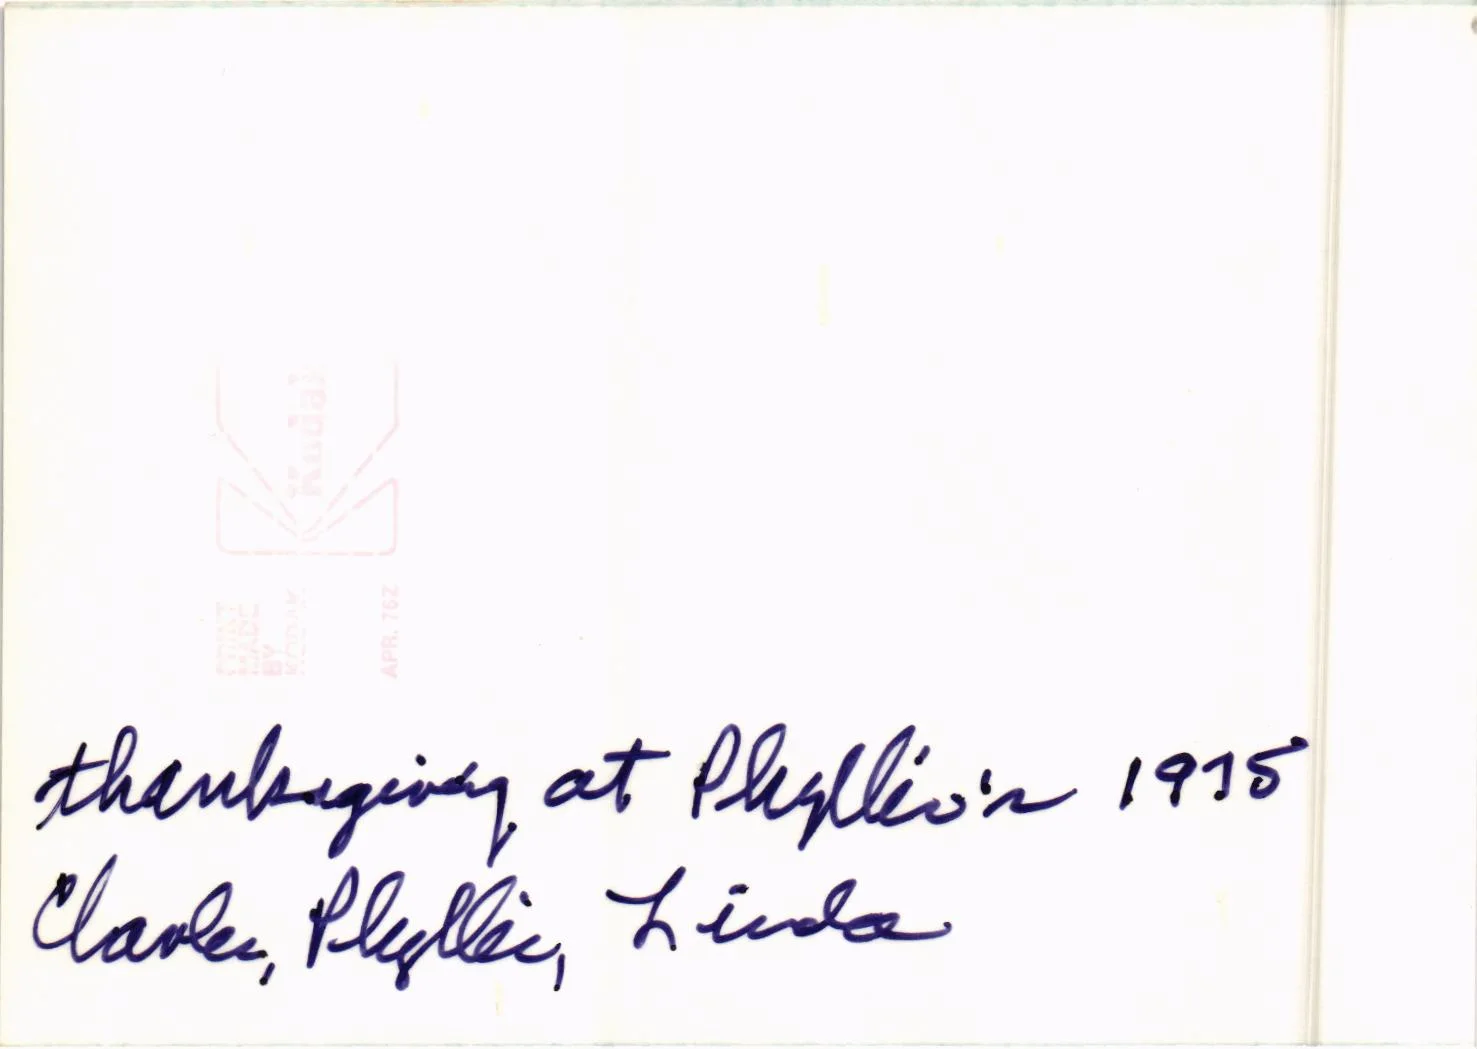 Kodak
PRINT
MADE
BY
KODAK
APR. 76Z
thanksgiving at Phyllis's 1975
Charles, Phyllis, Linda